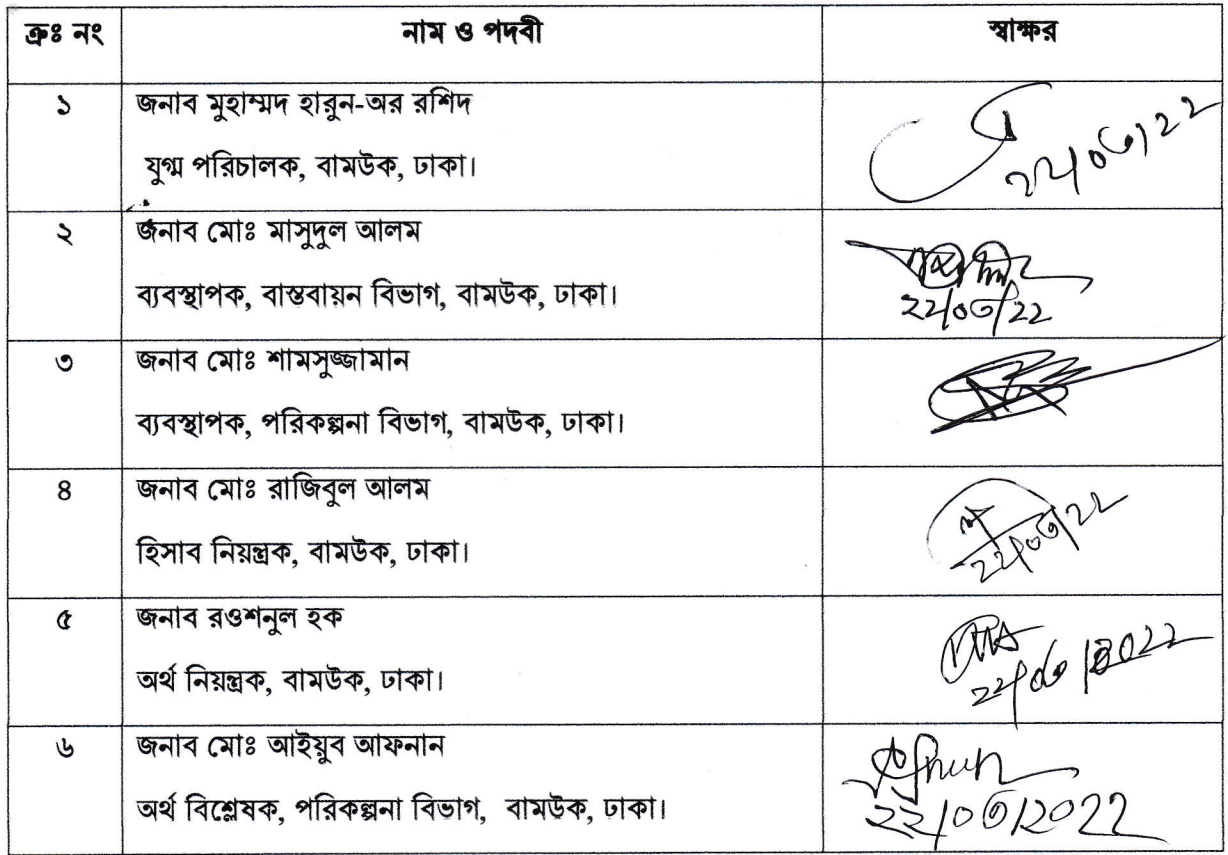 ক্রঃ নং নাম ও পদবী স্বাক্ষর
১ জনাব মুহাম্মদ হারুন-অর রশিদ
যুগ্ম পরিচালক, বামউক, ঢাকা।
২২/০৩/২২
২ জনাব মোঃ মাসুদুল আলম
ব্যবস্থাপক, বাস্তবায়ন বিভাগ, বামউক, ঢাকা।
২২/০৩/২২
৩ জনাব মোঃ শামসুজ্জামান
ব্যবস্থাপক, পরিকল্পনা বিভাগ, বামউক, ঢাকা।
৪ জনাব মোঃ রাজিবুল আলম
হিসাব নিয়ন্ত্রক, বামউক, ঢাকা।
২২/০৩/২২
৫ জনাব রওশনুল হক
অর্থ নিয়ন্ত্রক, বামউক, ঢাকা।
২২/০৩/২০২২
৬ জনাব মোঃ আইয়ুব আফনান
অর্থ বিশ্লেষক, পরিকল্পনা বিভাগ, বামউক, ঢাকা।
২২/০৩/২০২২